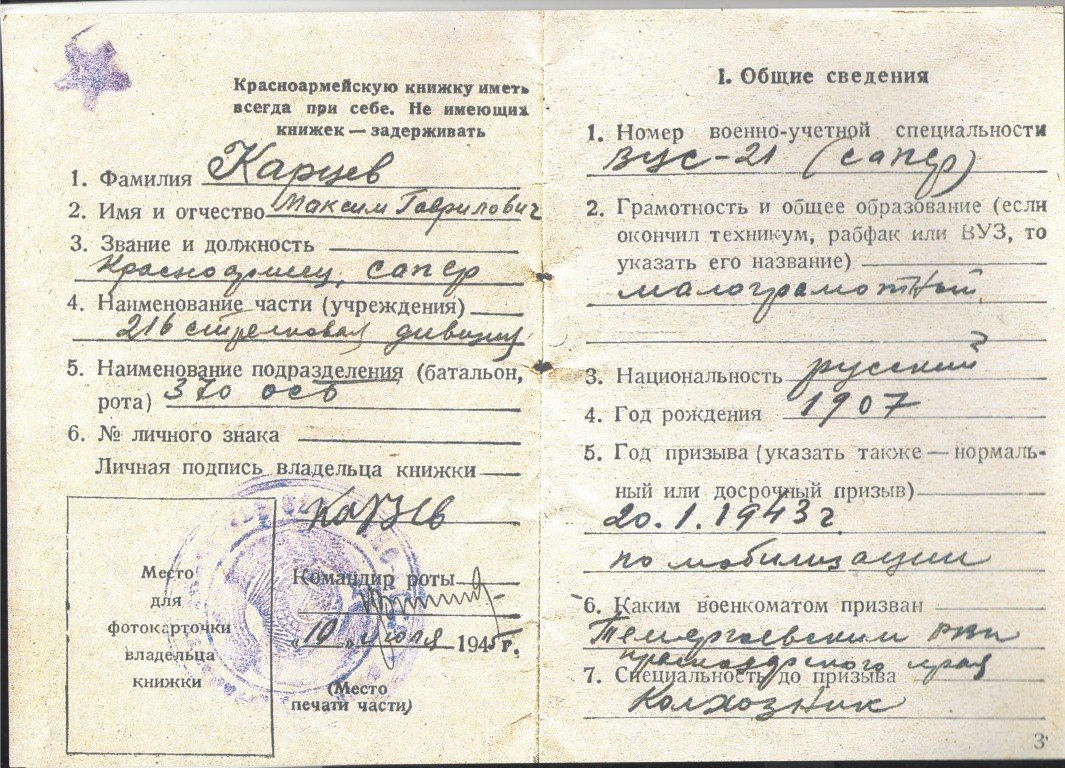 Красноармейскую книжку иметь
всегда при себе. Не имеющих
книжек — задерживать
1. Фамилия Карцев
2. Имя и отчество Максим Гаврилович
3. Звание и должность
Красноармеец, сапер
4. Наименование части (учреждения)
216 стрелковая дивизия
5. Наименование подразделения (батальон,
рота) 370 осб
6. № личного знака
Личная подпись владельца книжки
Место
для
фотокарточки
владельца
книжки
Командир роты
„10„ июля 1945г.
(Место
печати части)
1. Общие сведения
1. Номер военно-учетной специальности
ВУС-21 (сапер)
2. Грамотность и общее образование (если
окончил техникум, рабфак или ВУЗ, то
указать его название)
малограмотный
3. Национальность русский
4. Год рождения 1907
5. Год призыва (указать также — нормаль-
ный или досрочный призыв)
20.1.1943г
по мобилизации
6. Каким военкоматом призван
Темиргоевским РВК
краснодарского края
7. Специальность до призыва
Колхозник
3